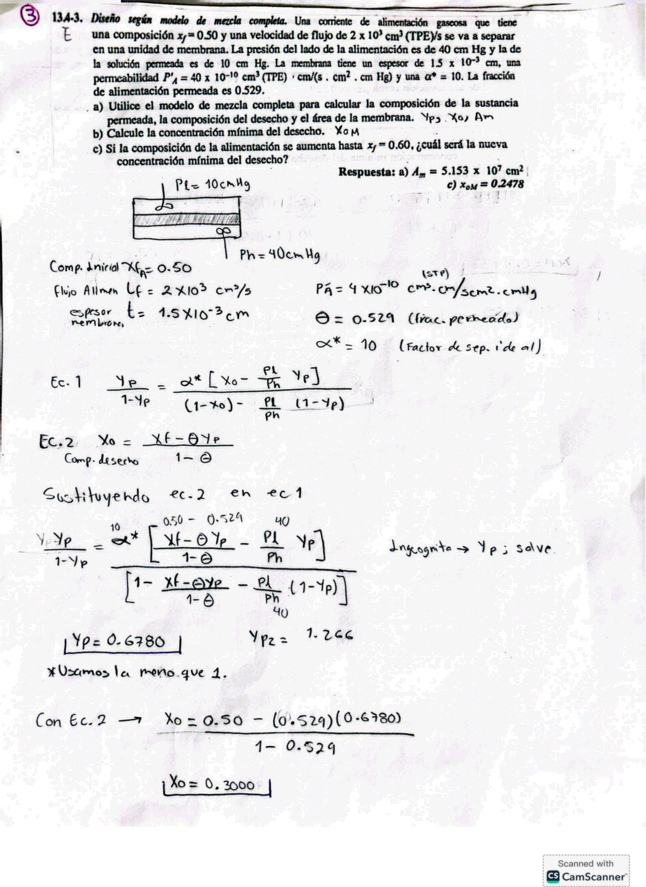 ③
E
13.4-3. Diseño según modelo de mezcla completa. Una corriente de alimentación gaseosa que tiene
una composición xf = 0.50 y una velocidad de flujo de 2 x 10³ cm³ (TPE)/s se va a separar
en una unidad de membrana. La presión del lado de la alimentación es de 40 cm Hg y la de
la solución permeada es de 10 cm Hg. La membrana tiene un espesor de 1.5 x 10⁻³ cm, una
permeabilidad P'A = 40 x 10⁻¹⁰ cm³ (TPE) · cm/(s . cm² . cm Hg) y una α* = 10. La fracción
de alimentación permeada es 0.529.
a) Utilice el modelo de mezcla completa para calcular la composición de la sustancia
permeada, la composición del desecho y el área de la membrana. Yp, Xo, Am
b) Calcule la concentración mínima del desecho. XoM
c) Si la composición de la alimentación se aumenta hasta xf = 0.60, ¿cuál será la nueva
concentración mínima del desecho?
Respuesta: a) Am = 5.153 x 10⁷ cm²
c) xoM = 0.2478
Pl = 10cmHg
Ph = 40cmHg
Comp. Inicial → XfA = 0.50
flujo Alimen Lf = 2 x10³ cm³/s
espesor membrana, t = 1.5x10⁻³ cm
P'A = 4 x10⁻¹⁰ cm³(STP).cm/scm².cmHg
θ = 0.529 (frac. permeado)
α* = 10 (Factor de sep. ideal)
Ec. 1 Yp/(1-Yp) = α* [Xo - Pl/Ph Yp] / (1-Xo) - Pl/Ph (1-Yp)
Ec. 2 Xo = (Xf - θYp)/(1 - θ)
Comp. desecho
Sustituyendo ec.2 en ec 1
10 0.50 - 0.529 40
Yp/(1-Yp) = α* [(Xf - θYp)/(1-θ) - Pl/Ph Yp] / [1 - (Xf - θYp)/(1-θ) - Pl/Ph (1-Yp)]
40
Incognito → Yp ; solve
Yp = 0.6780
Yp2 = 1.266
*Usamos la meno. que 1.
Con Ec. 2 → Xo = 0.50 - (0.529)(0.6780)
1 - 0.529
Xo = 0.3000
Scanned with
CS CamScanner